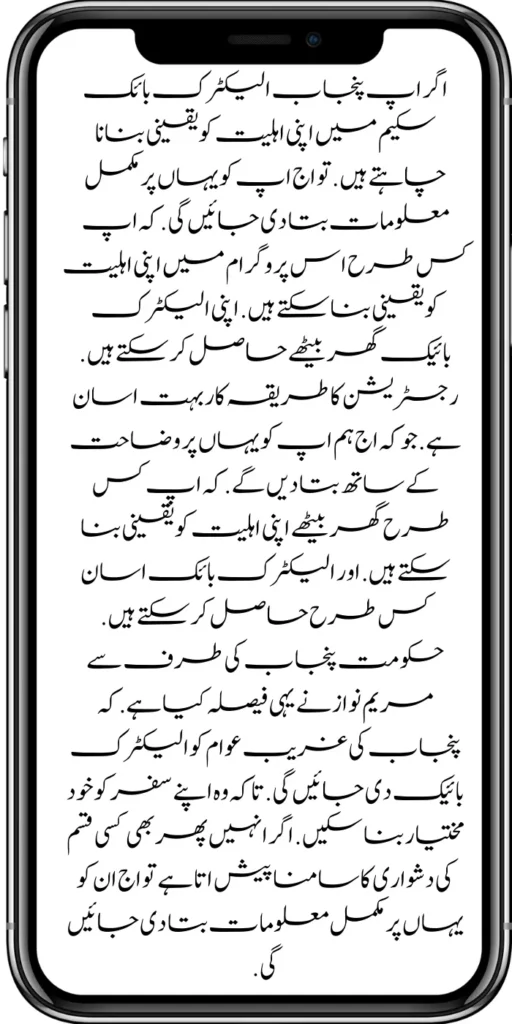 اگر اپ پنجاب الیکٹرک بائک
سکیم میں اپنی اہلیت کو یقینی بنانا
چاہتے ہیں. تو اج اپ کو یہاں پر مکمل
معلومات بتا دی جائیں گی. کہ اپ
کس طرح اس پروگرام میں اپنی اہلیت
کو یقینی بنا سکتے ہیں. اپنی الیکٹرک
بائیک گھر بیٹھے حاصل کر سکتے ہیں.
رجسٹریشن کا طریقہ کار بہت اسان
ہے. جو کہ اج ہم اپ کو یہاں پر وضاحت
کے ساتھ بتا دیں گے. کہ اپ کس
طرح گھر بیٹھے اپنی اہلیت کو یقینی بنا
سکتے ہیں. اور الیکٹرک بائک اسان
کس طرح حاصل کر سکتے ہیں.
حکومت پنجاب کی طرف سے
مریم نواز نے یہی فیصلہ کیا ہے. کہ
پنجاب کی غریب عوام کو الیکٹرک
بائیک دی جائیں گی. تاکہ وہ اپنے سفر کو خود
مختیار بنا سکیں. اگر انہیں پھر بھی کسی قسم
کی دشواری کا سامنا پیش اتا ہے تو اج ان کو
یہاں پر مکمل معلومات بتا دی جائیں
گی.